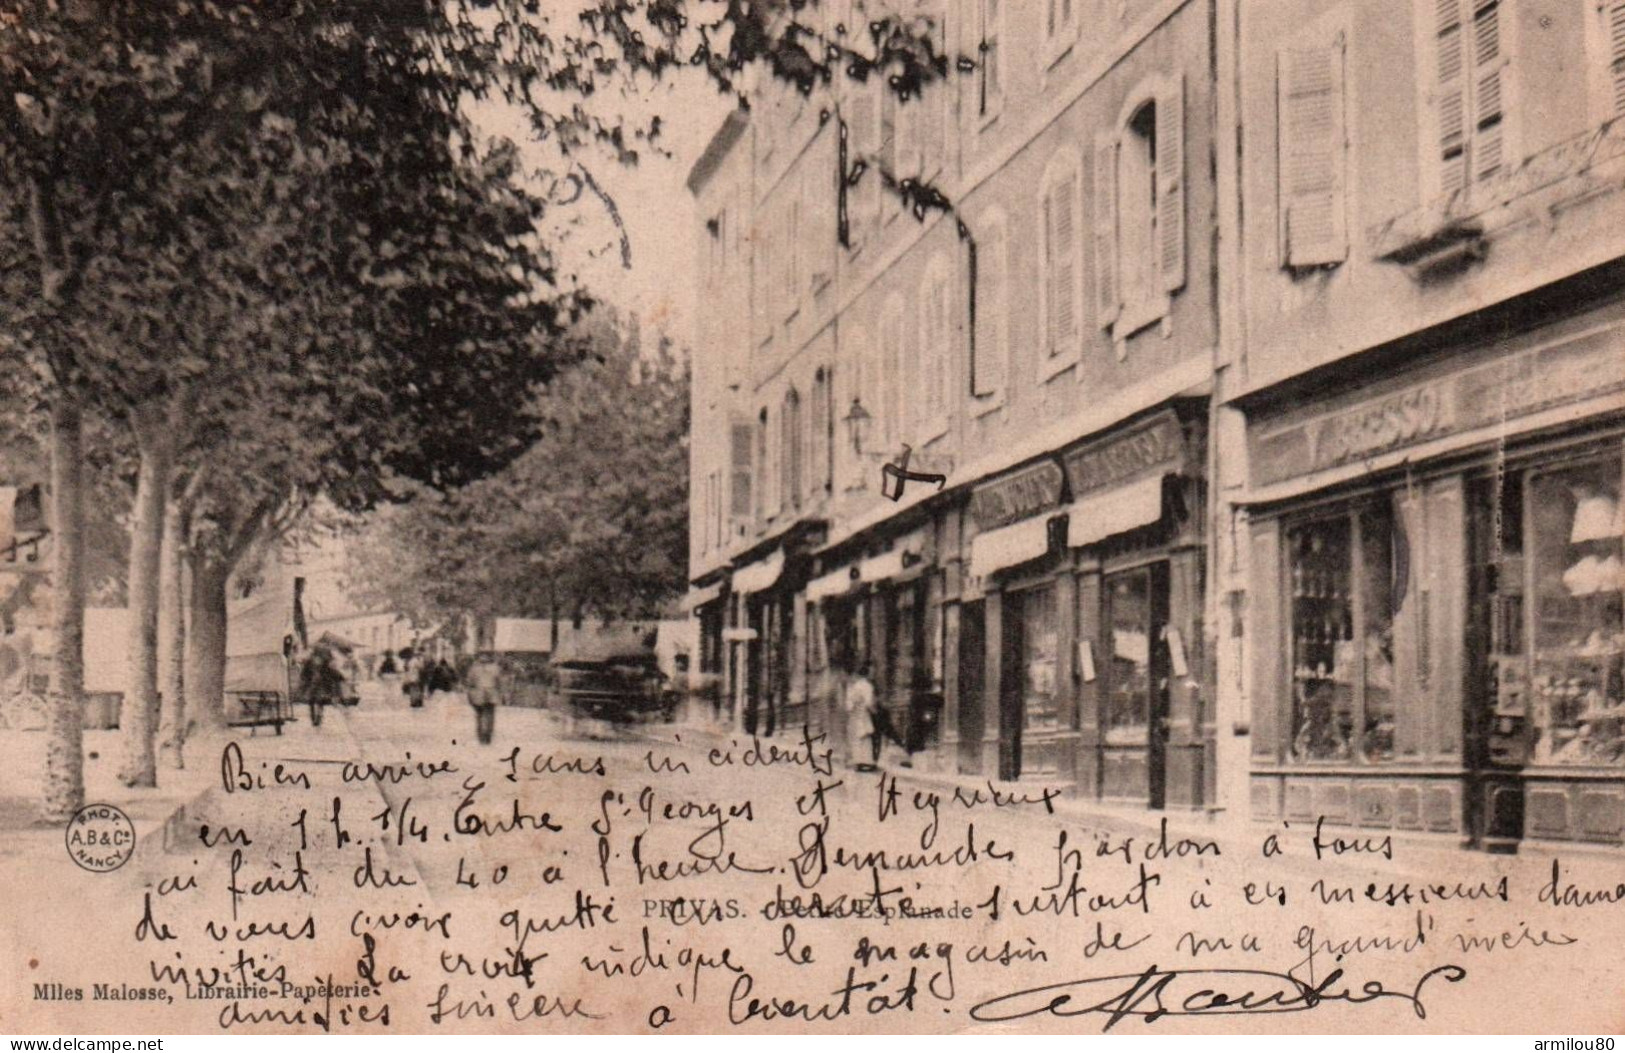 V. BRESSO
Bien arrivé, sans incidents
en 1 h. 1/4. Entre St Georges et Heyrieux
ai fait du 40 à l'heure. Demandes pardon à tous
de vous avoir quitté en deroute surtout à ces messieurs dame
PRIVAS. - Petite Esplanade
invités. La croix indique le magasin de ma grand' mère
amitiés sincère à bientôt.
PHOT.
A.B & Cie
NANCY
Mlles Malosse, Librairie-Papeterie
delcampe.net
armilou80